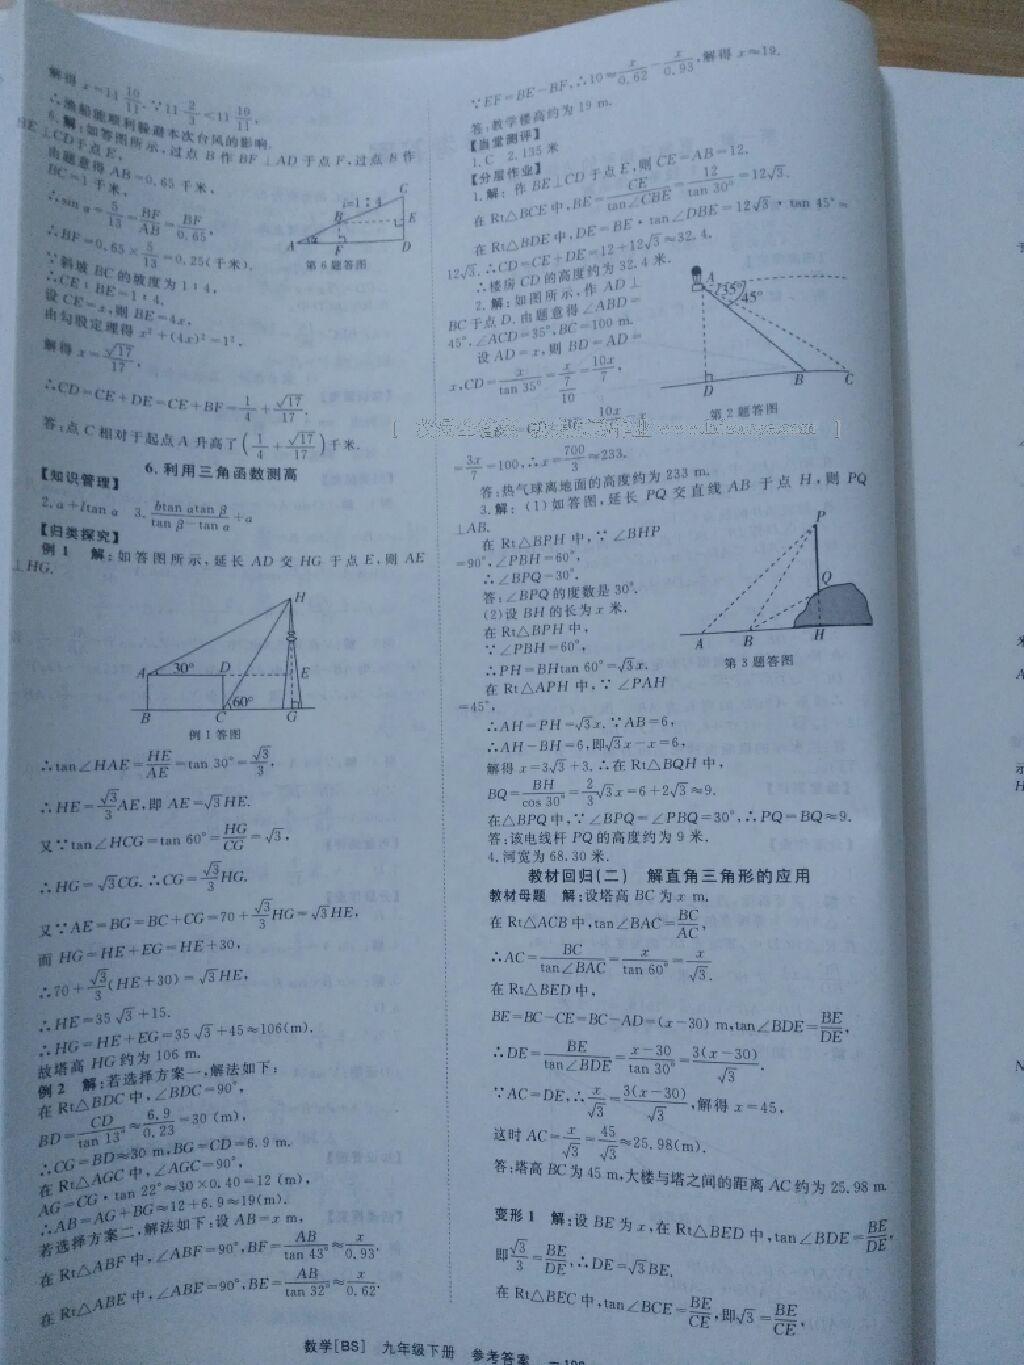 解得 x=11 10/11.∵11 2/3<11 10/11,
∴渔船能顺利躲避本次台风的影响.
6.解:如答图所示,过点 B 作 BF⊥AD 于点 F,过点 B 作
BE⊥CD于点 E,
由题意得 AB=0.65 千米,
BC=1 千米,
∴sin α=5/13=BF/AB=BF/0.65,
∴BF=0.65×5/13=0.25(千米).
∵斜坡 BC 的坡度为 1∶4,
∴CE∶BE=1∶4,
设 CE=x,则 BE=4x,
由勾股定理得 x²+(4x)²=1²,
解得 x=√17/17,
∴CD=CE+DE=CE+BF=1/4+√17/17,
答:点 C 相对于起点 A 升高了(1/4+√17/17)千米.
C
i=1∶4
B
E
A
α
F
D
第 6 题答图
6.利用三角函数测高
【知识管理】
2.a+ltan α 3. btan αtan β/(tan β-tan α)+a
【归类探究】
例 1 解:如答图所示,延长 AD 交 HG 于点 E,则 AE
⊥HG.
H
A
30°
D
E
60°
B
C
G
例 1 答图
∴tan∠HAE=HE/AE=tan 30°=√3/3,
∴HE=√3/3AE,即 AE=√3HE.
又∵tan∠HCG=tan 60°=HG/CG=√3,
∴HG=√3CG.∴CG=√3/3HG.
又∵AE=BG=BC+CG=70+√3/3HG=√3HE,
而 HG=HE+EG=HE+30,
∴70+√3/3(HE+30)=√3HE,
∴HE=35√3+15.
∴HG=HE+EG=35√3+45≈106(m).
故塔高 HG 约为 106 m.
例 2 解:若选择方案一,解法如下:
在 Rt△BDC 中,∠BDC=90°,
BD=CD/tan 13°≈6.9/0.23=30 (m),
∴CG=BD≈30 m,BG=CD=6.9 m.
在 Rt△AGC 中,∠AGC=90°,
AG=CG·tan 22°≈30×0.40=12 (m),
∴AB=AG+BG≈12+6.9≈19(m).
若选择方案二,解法如下:设 AB=x m,
在 Rt△ABF 中,∠ABF=90°,BF=AB/tan 43°≈x/0.93,
在 Rt△ABE 中,∠ABE=90°,BE=AB/tan 32°≈x/0.62.
∵EF=BE-BF,∴10≈x/0.62-x/0.93,解得 x≈19.
答:教学楼高约为 19 m.
【当堂测评】
1.C 2.135 米
【分层作业】
1.解:作 BE⊥CD 于点 E,则 CE=AB=12.
在 Rt△BCE 中,BE=CE/tan∠CBE=12/tan 30°=12√3.
在 Rt△BDE 中,DE=BE·tan∠DBE=12√3·tan 45°=
12√3.∴CD=CE+DE=12+12√3≈32.4.
∴楼房 CD 的高度约为 32.4 米.
2.解:如图所示,作 AD⊥
BC 于点 D.由题意得∠ABD=
45°,∠ACD=35°,BC=100 m.
设 AD=x,则 BD=AD=
x,CD=x/tan 35°=x/(7/10)=10x/7,
A
35°
45°
D
B
C
第 2 题答图
10x/7
=3x/7=100,∴x=700/3≈233.
答:热气球离地面的高度约为 233 m.
3.解:(1)如答图,延长 PQ 交直线 AB 于点 H,则 PQ
⊥AB.
在 Rt△BPH 中,∵∠BHP
=90°,∠PBH=60°,
∴∠BPQ=30°.
答:∠BPQ 的度数是 30°.
(2)设 BH 的长为 x 米.
在 Rt△BPH 中,
∵∠PBH=60°,
∴PH=BHtan 60°=√3x.
在 Rt△APH 中,∵∠PAH
=45°,
P
Q
A
B
H
第 3 题答图
∴AH=PH=√3x.∵AB=6,
∴AH-BH=6,即√3x-x=6,
解得 x=3√3+3.∴在 Rt△BQH 中,
BQ=BH/cos 30°=2/3√3x=6+2√3≈9.
在△BPQ 中,∵∠BPQ=∠PBQ=30°,∴PQ=BQ≈9.
答:该电线杆 PQ 的高度约为 9 米.
4.河宽为 68.30 米.
教材回归(二) 解直角三角形的应用
教材母题 解:设塔高 BC 为 x m.
在 Rt△ACB 中,tan∠BAC=BC/AC,
∴AC=BC/tan∠BAC=x/tan 60°=x/√3.
在 Rt△BED 中,
BE=BC-CE=BC-AD=(x-30) m,tan∠BDE=BE/DE,
∴DE=BE/tan∠BDE=x-30/tan 30°=3(x-30)/√3.
∵AC=DE,∴x/√3=3(x-30)/√3,解得 x=45,
这时 AC=x/√3=45/√3≈25.98(m).
答:塔高 BC 为 45 m,大楼与塔之间的距离 AC 约为 25.98 m
变形 1 解:设 BE 为 x,在 Rt△BED 中,tan∠BDE=BE/DE,
即√3/3=BE/DE,∴DE=√3BE.
在 Rt△BEC 中,tan∠BCE=BE/CE,即√3=BE/CE,
数学[BS] 九年级下册 参考答案